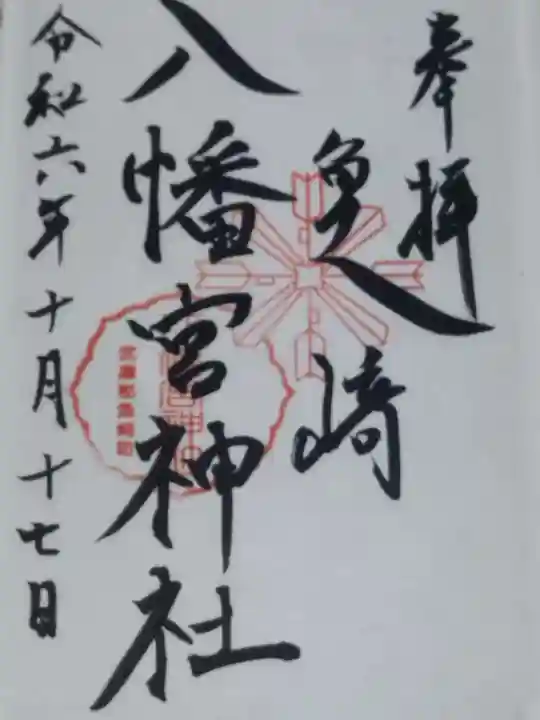 奉拝
魚崎
八幡宮神社
令和六年十月十七日